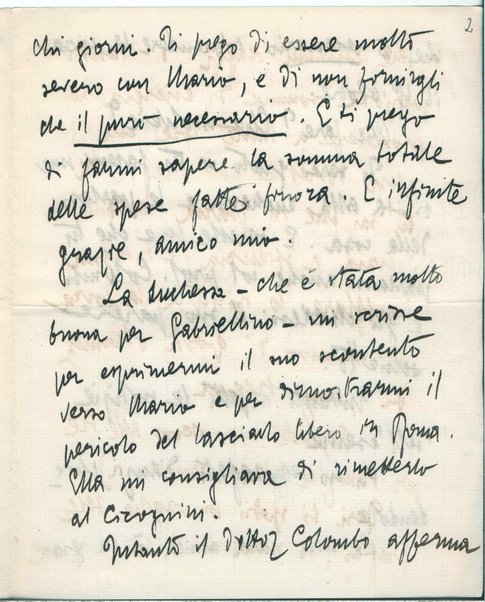 2
chi giorni. Ti prego di essere molto
severo con Mario, e di non fornirgli
che il puro necessario. E ti prego
di farmi sapere la somma totale
delle spese fatte finora. E infinite
grazie, amico mio.
La duchessa – che è stata molto
buona per Gabriellino – mi scrisse
per esprimermi il suo scontento
verso Mario e per dimostrarmi il
pericolo del lasciarlo libero in Roma.
Ella mi consigliava di rimetterlo
al Cicognini.
Intanto il Dottor Colombo afferma